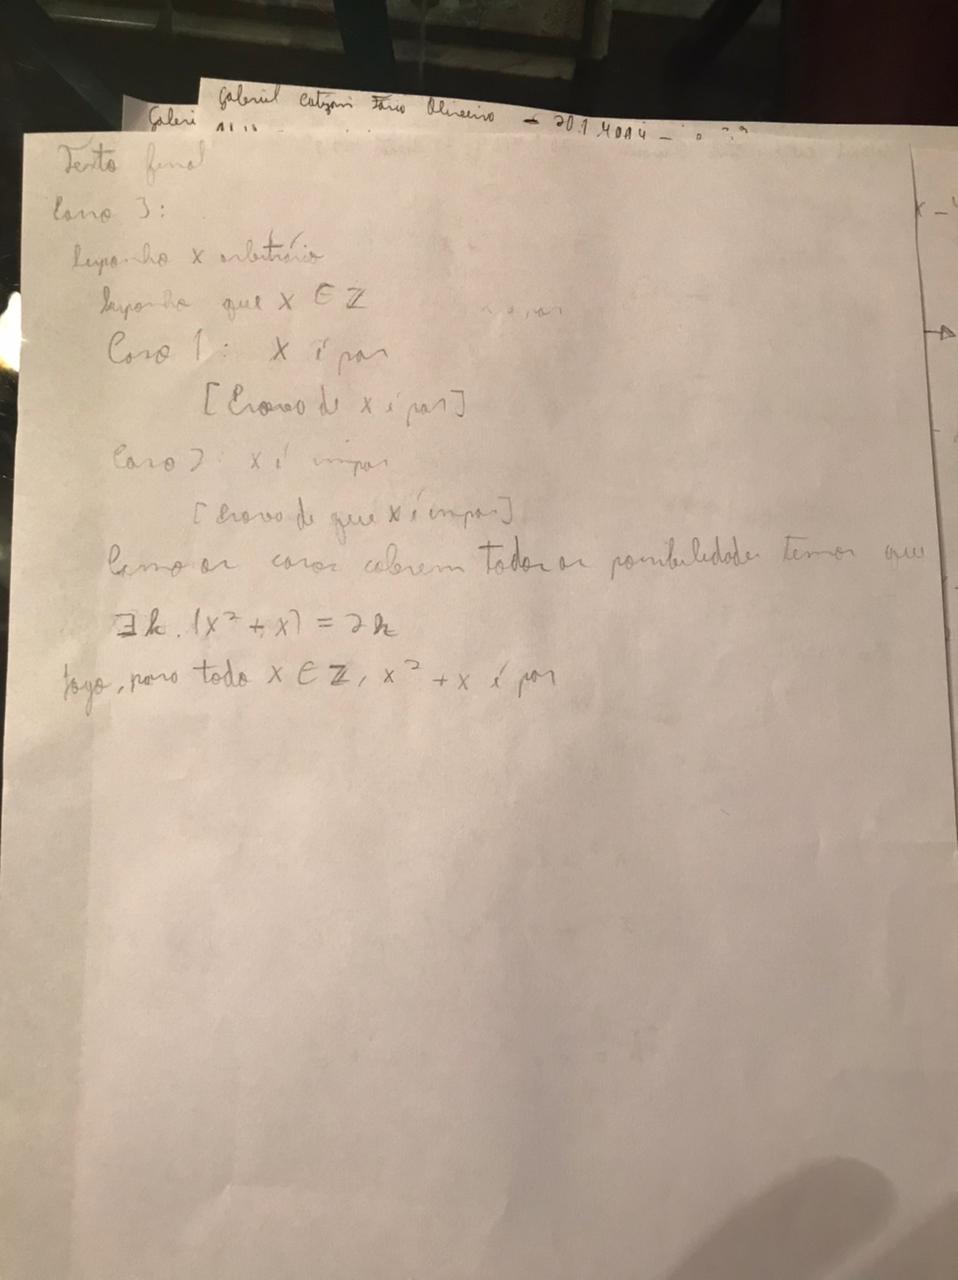 Gabriel Oliveira - 20.1.4014 -
Gabri
Texto final
Caso 3:
Suponha x arbitrário
Suponha que x ∈ ℤ
Caso 1: x é par
[Prova de x é par]
Caso 2: x é impar
[Prova de que x é impar]
Como os casos cobrem todas as possibilidades temos que
∃k.(x² + x) = 2k
Logo, para todo x ∈ ℤ, x² + x é par
x -